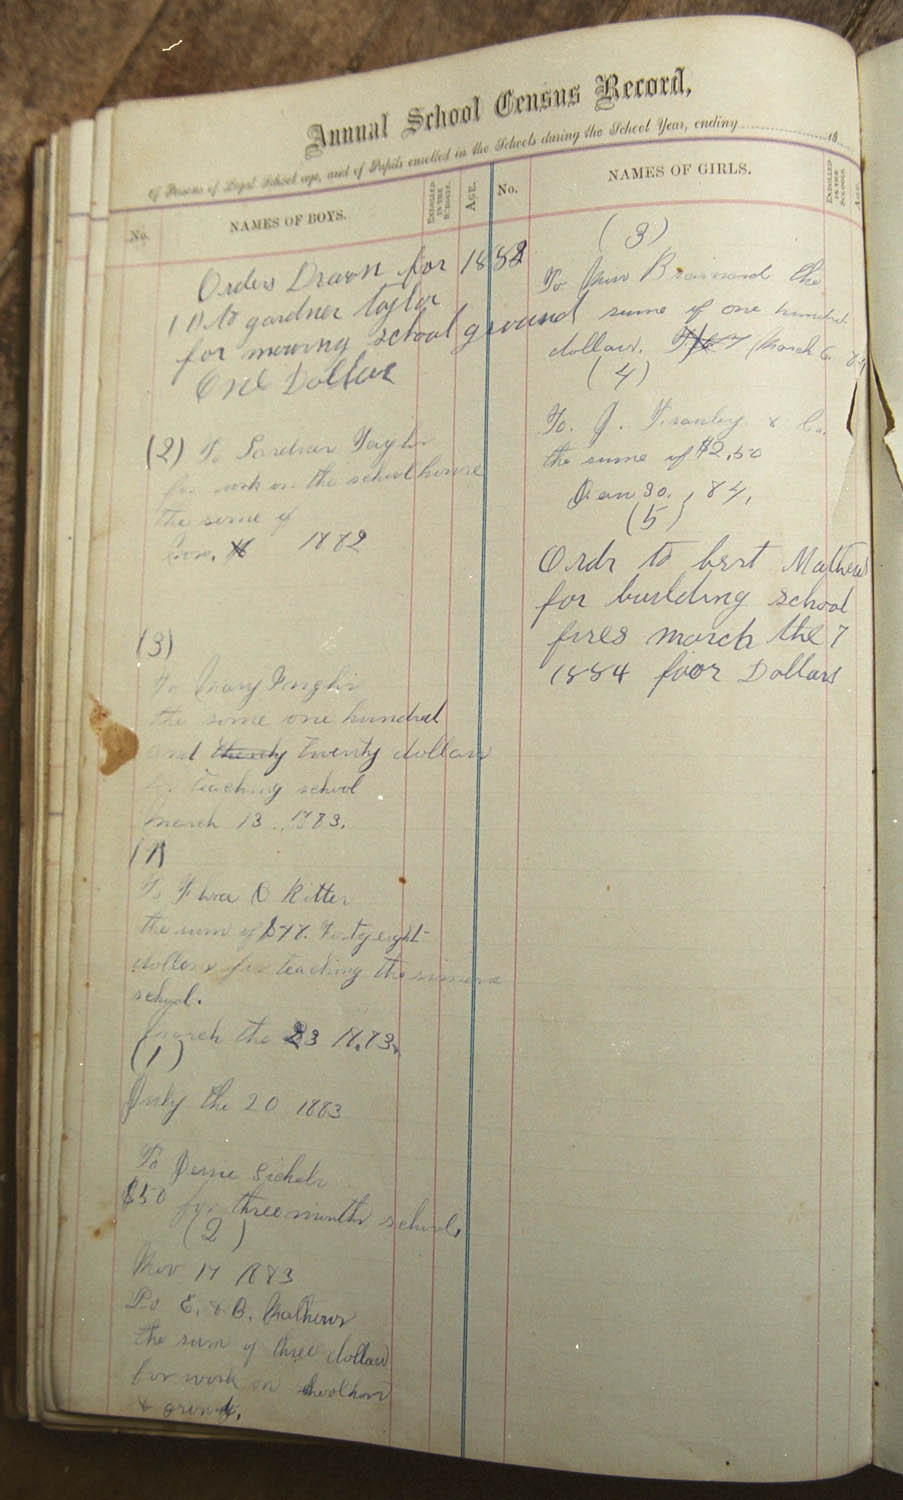 Annual School Census Record,
Of Persons of Legal School age, and of Pupils enrolled in the Schools during the School Year, ending 18
No. NAMES OF BOYS. ENROLLED IN THE SCHOOLS. AGE.
Orders Drawn for 1882
(1) to gardner taylor
for mowing school ground
One Dollar
(2) To Gardner Taylor
for work on the schoolhouse
the sume of
1882
(3)
To Mary
the some one hundred
and twenty dollars
for teaching school
March 13, 1883.
To O Ritter
the sum of $48. Forty eight
dollars for teaching the
school.
March the 23 1883.
(1)
July the 20 1883
To
$50 for three months school.
(2)
Nov 17 1883
To E. & B. Mathews
the sum of three dollars
for work on
&
No. NAMES OF GIRLS. ENROLLED IN THE SCHOOLS. AGE.
(3)
To Brainard the
sume of one hundred
dollars. March 6. 84
(4)
To. J. & Co.
the sume of $2.50
Jan 30, 84.
(5)
Ordr to bert Mathews
for building school
fires march the 7
1884 foor Dollars